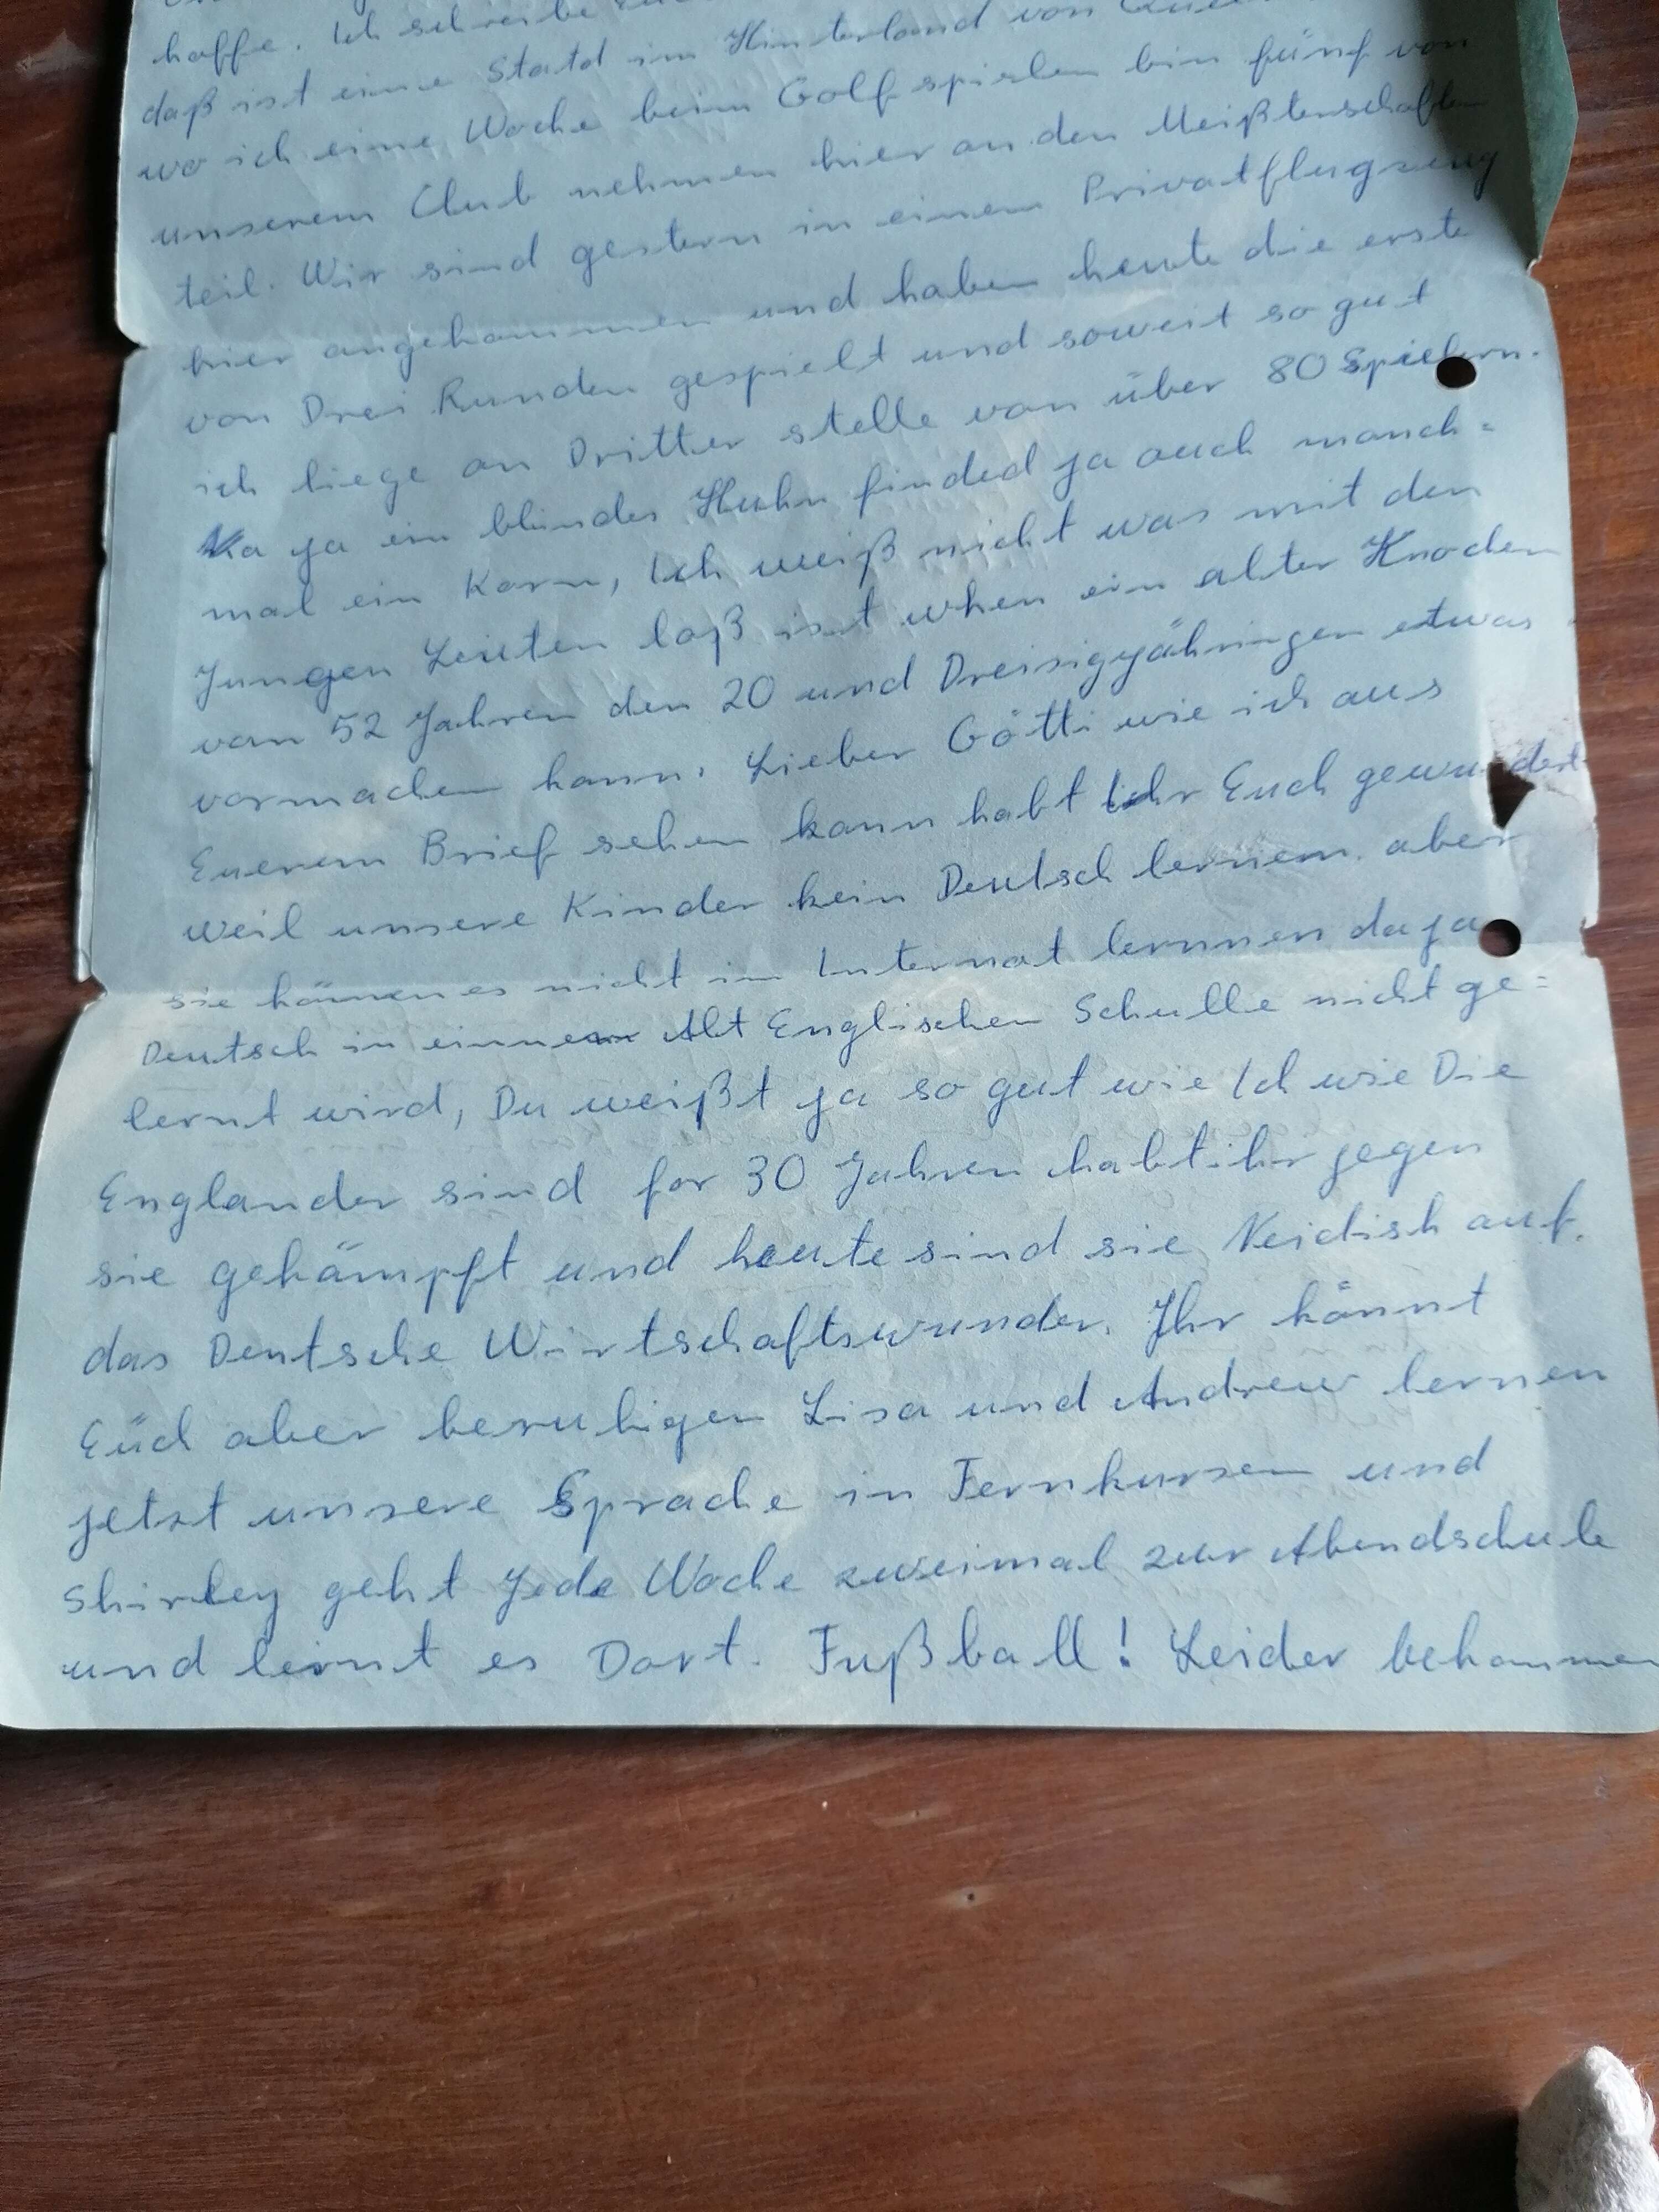 hoffe. Ich schreibe
daß ist eine Statd im Hinterland von
wo ich eine Woche beim Golf spielen bin fünf von
unserem Club nehmen hier an den Meißtenschaften
teil. Wir sind gestern in einem Privatflugzeug
hier angekommen und haben heute die erste
von Drei Runden gespielt und soweit so gut
ich liege an Dritter stelle von über 80 Spielern.
Na ja ein blindes Huhn finded ja auch manch=
mal ein Korn, Ich weiß nicht was mit den
Jungen Leuten loß ist when ein alter Knochen
von 52 Jahren den 20 und Dreisigjähringen etwas
vormachen kann. Lieber Götti wie ich aus
Euerem Brief sehen kann habt Ihr Euch gewundert
weil unsere Kinder kein Deutsch lernen. aber
sie können es nicht im Internat lernnen da ja
Deutsch in einner Alt Englischen Schulle nicht ge=
lernt wird, Du weißt ja so gut wie Ich wie Die
Englander sind for 30 Jahren habt ihr gegen
sie gekämpft und heute sind sie Neidish auf.
das Deutsche Wirtschaftswunder. Ihr könnt
Eüch aber beruhigen Lisa und Andrew lernen
jetzt unsere Sprache in Fernkursen und
Shirley geht Jede Woche zweimal zur Abendschule
und lernt es Dort. Fußball! Leider bekommen